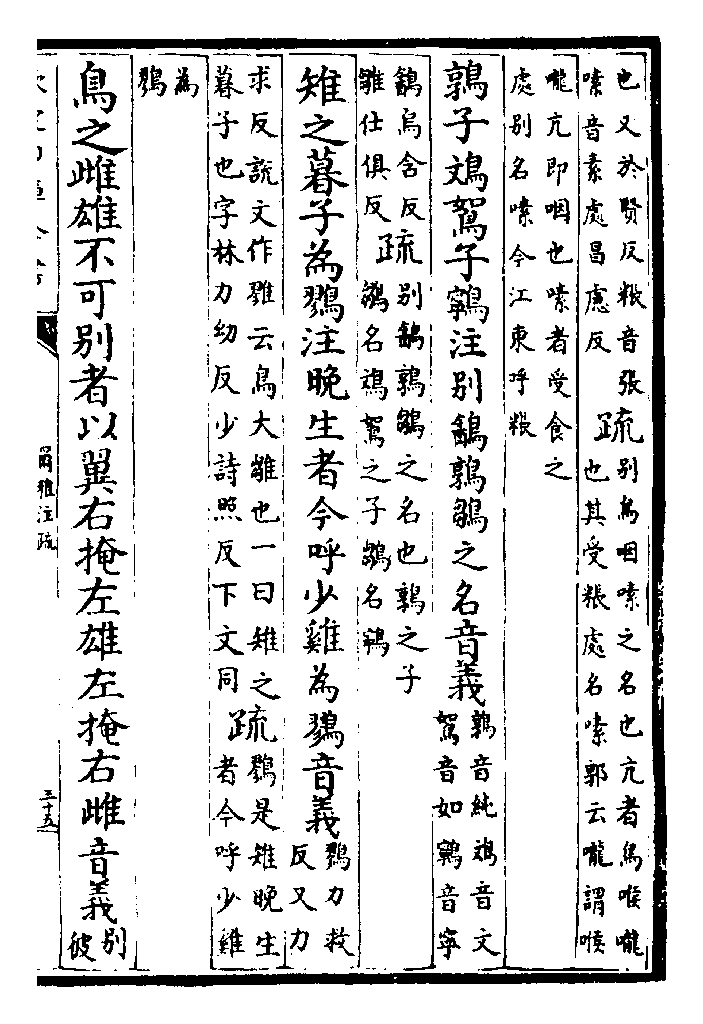 也又於賢反粻音張
嗉音素處昌慮反
疏
別鳥咽嗉之名也亢者鳥喉嚨
也其受粻處名嗉郭云嚨謂喉
嚨亢即咽也嗉者受食之
處別名嗉今江東呼粻
鶉子鳼鴽子鸋注別䳺鶉鶵之名音義
鶉音純鳼音文
鴽音如鸋音寧
䳺烏含反
雛仕俱反
疏
別䳺鶉鶵之名也鶉之子
鶵名鳼鴽之子鶵名鸋
雉之暮子為鷚注晚生者今呼少雞為鷚音義
鷚力救
反又力
求反説文作雡云鳥大雛也一曰雉之
暮子也字林力幼反少詩照反下文同
疏
鷚是雉晚生
者今呼少雞
為
鷚
鳥之雌雄不可別者以翼右掩左雄左掩右雌音義
別
彼
爾雅注疏
三十五